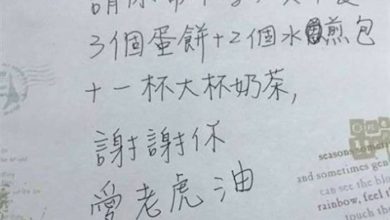 3個蛋餅+2個水煎包
+一杯大杯奶茶,
謝謝你
愛老虎油
seasons
and sometimes
can see the
rainbow, feel
touch the